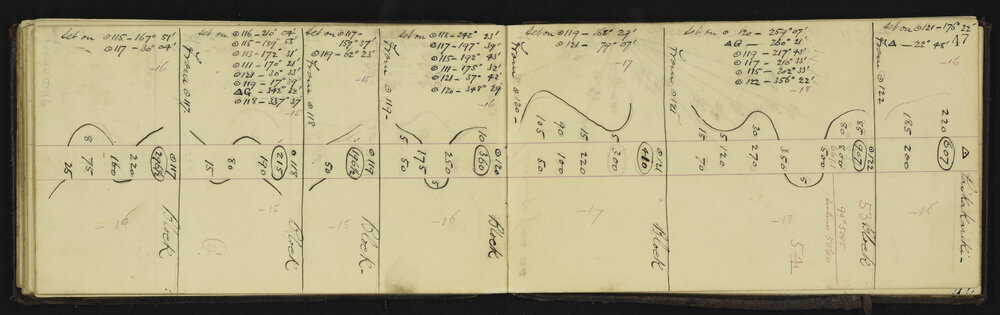 Set on ⊙115-167° 51'
⊙117-30° 04'
-16
⊙117
2966
220
160
75
8
25
Block
-16
From ⊙117
Set on ⊙116-210° 04'
⊙115-189° 53'
⊙113-172° 31'
⊙111-170° 21'
⊙121-30° 33'
⊙119-17° 39'
△G-342° 32'
⊙118-337° 37'
-15
⊙118
215
190
80
15
Block
-15
From ⊙118
Set on ⊙117-
157° 37'
⊙119-62° 23'
-15
⊙119
1906
50
Block-
-15
From ⊙119-
Set on ⊙118-242° 23'
⊙117-197° 39'
⊙115-192° 43'
⊙111-175° 32'
⊙121-37° 42'
⊙120-348° 29
-16
⊙120
360
10
250
5
175
50
5
Block
-16
From ⊙120-
Set on ⊙119-168° 29'
⊙121-79° 07'
-17
⊙121
480
300
5
220
15
100
90
50
105
Block
-17
From ⊙121
Set on ⊙120-259° 07'
△G-260° 21'
⊙119-217° 43'
⊙117-210° 33'
⊙115-202° 33'
⊙122-356° 22'
-18
⊙122
907
85
800
80
500
350
5
270
30
120
5
70
15
Block
53
54
-18
From ⊙122
Set on ⊙121-176° 22'
△-22° 48'
47
-16
△
607
220
200
185
-16